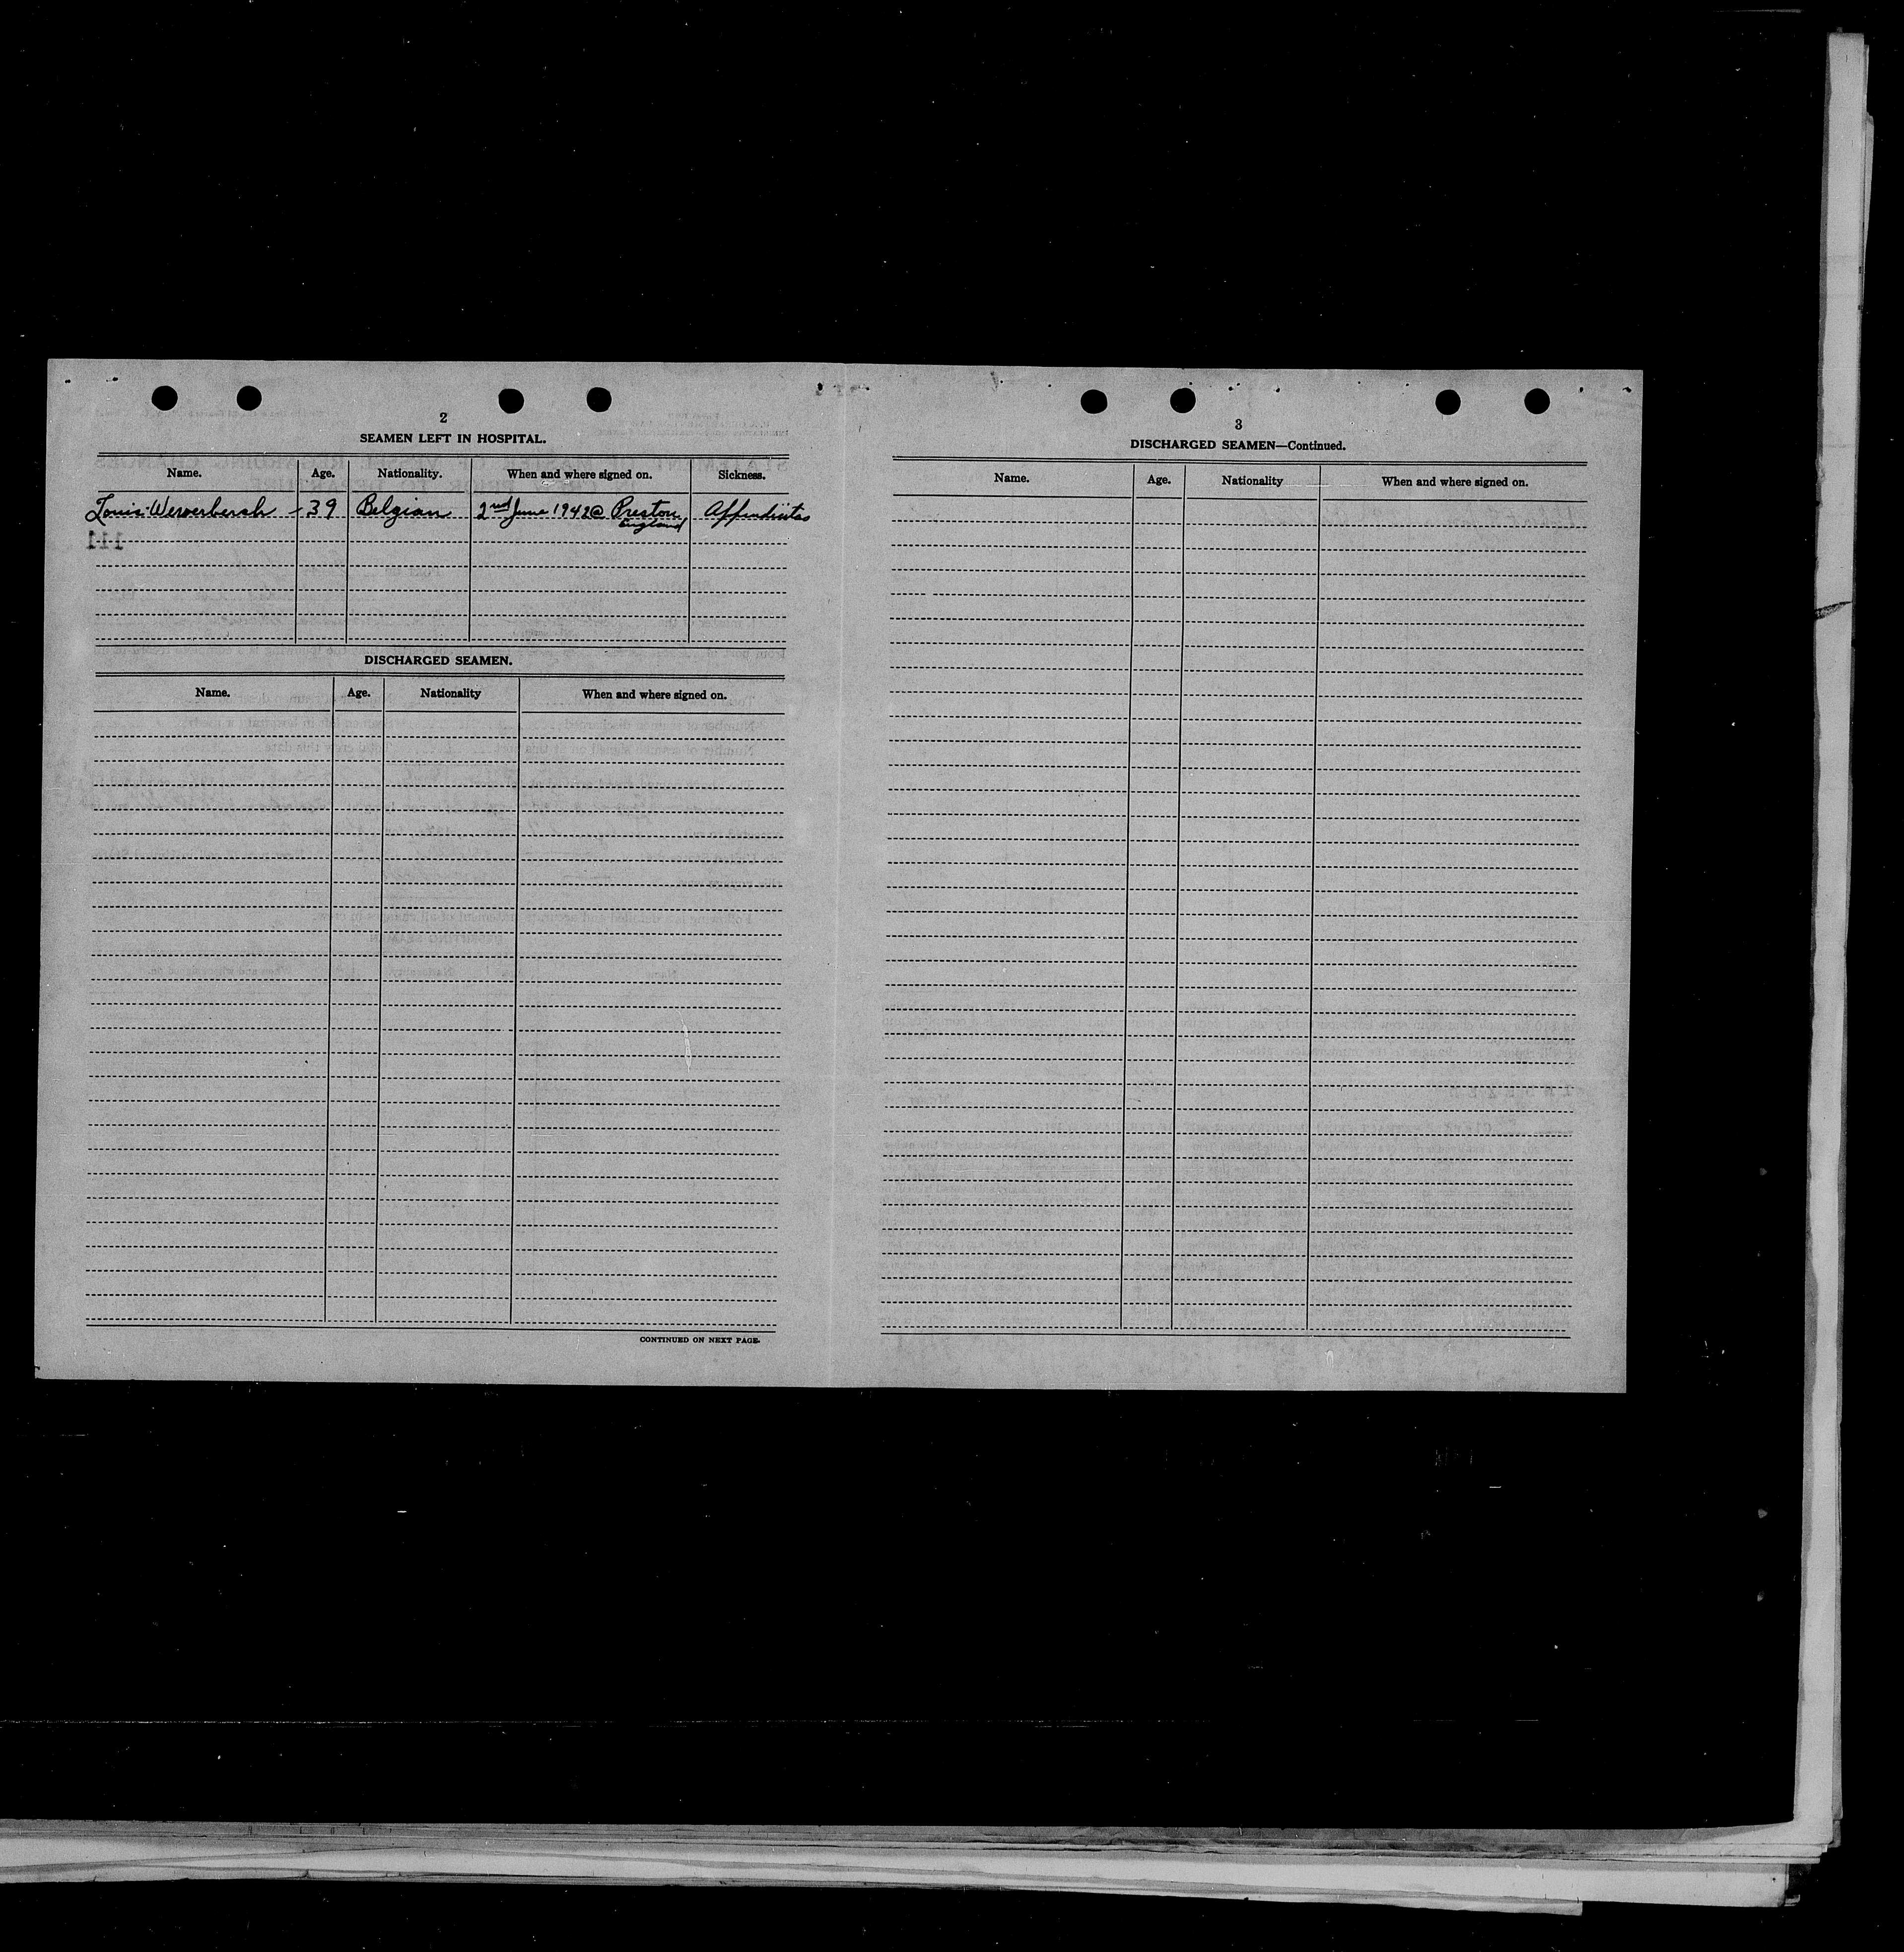 2
SEAMEN LEFT IN HOSPITAL.
Name. Age. Nationality. When and where signed on. Sickness.
Louis Ververbergh - 39 Belgian 2nd June 1942 @ Preston Appendicitas
England
111
DISCHARGED SEAMEN.
Name. Age. Nationality When and where signed on.
CONTINUED ON NEXT PAGE.
3
DISCHARGED SEAMEN—Continued.
Name. Age. Nationality When and where signed on.